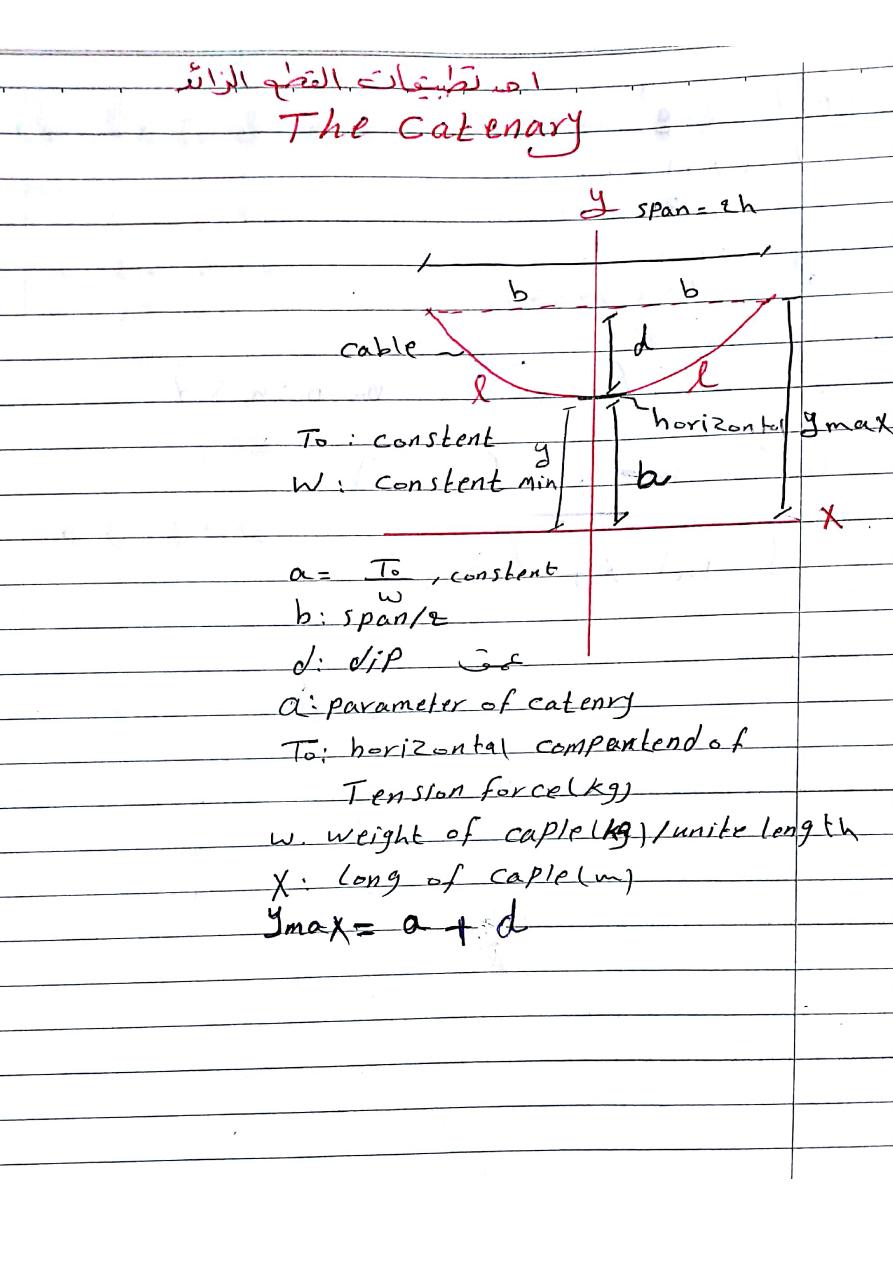 احد تطبيقات القطع الزائد
The Catenary
y span = 2h
b b
cable d
l l
horizontal y max
To : constent y
W : constent min a
X
a = To/w , constent
b : span/2
d : dip عمق
a : parameter of catenry
To : horizontal compentend of
Tension force (kg)
w. weight of caple (kg) / unite length
X : long of caple (m)
ymax = a + d